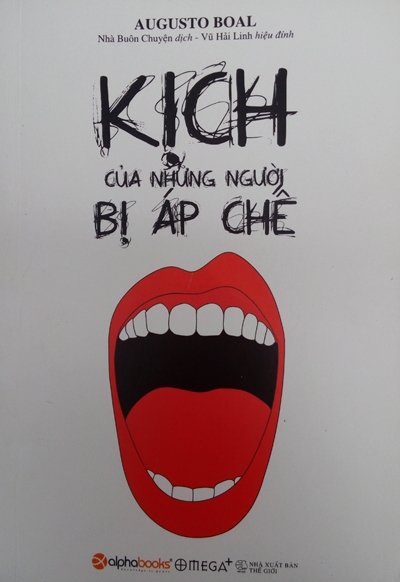 AUGUSTO BOAL
Nhà Buôn Chuyện dịch - Vũ Hải Linh hiệu đính
KỊCH
CỦA NHỮNG NGƯỜI
BỊ ÁP CHẾ
alphabooks
knowledge is power
OMEGA+
NHÀ XUẤT BẢN
THẾ GIỚI